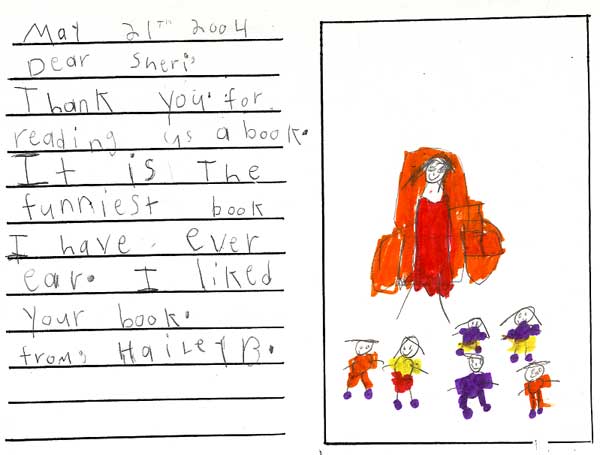 May 21TH 2004
Dear Sheri
Thank you. for
reading us a book.
It is The
funniest book
I have ever
ear. I liked
Your book.
from, Hailey B.